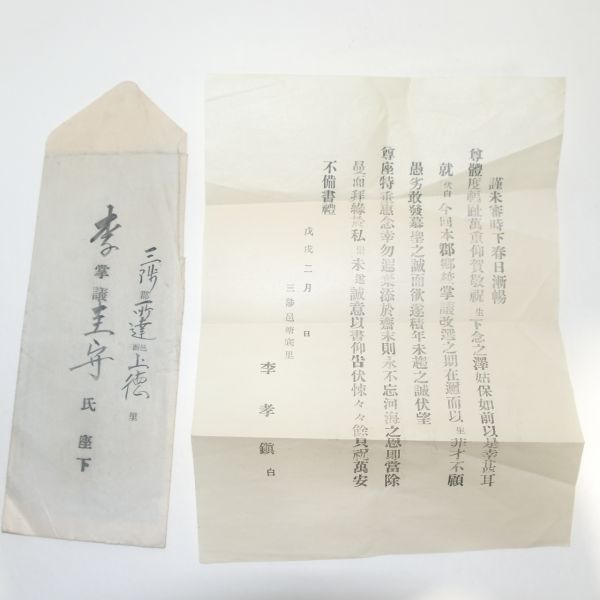 謹未審時下春日漸暢
尊體度輶祉萬重仰賀敬祝 生 下念之澤姑保如前以是幸甚耳
就 伏白 今回本郡鄉校掌議改選之期在邇而以 生 非才不顧
愚劣敢發慕聖之誠而欲遂積年未趨之誠伏望
尊座特垂惠念幸勿遐棄添於齋末則永不忘河海之恩卽當除
曼面拜緣於私 未遑誠意以書仰告伏悚々々餘只祝萬安
不備書禮
戊戌二月 日
三陟邑 里
李孝鎭 白
三陟郡 所達面 上德里
李掌議圭守氏座下